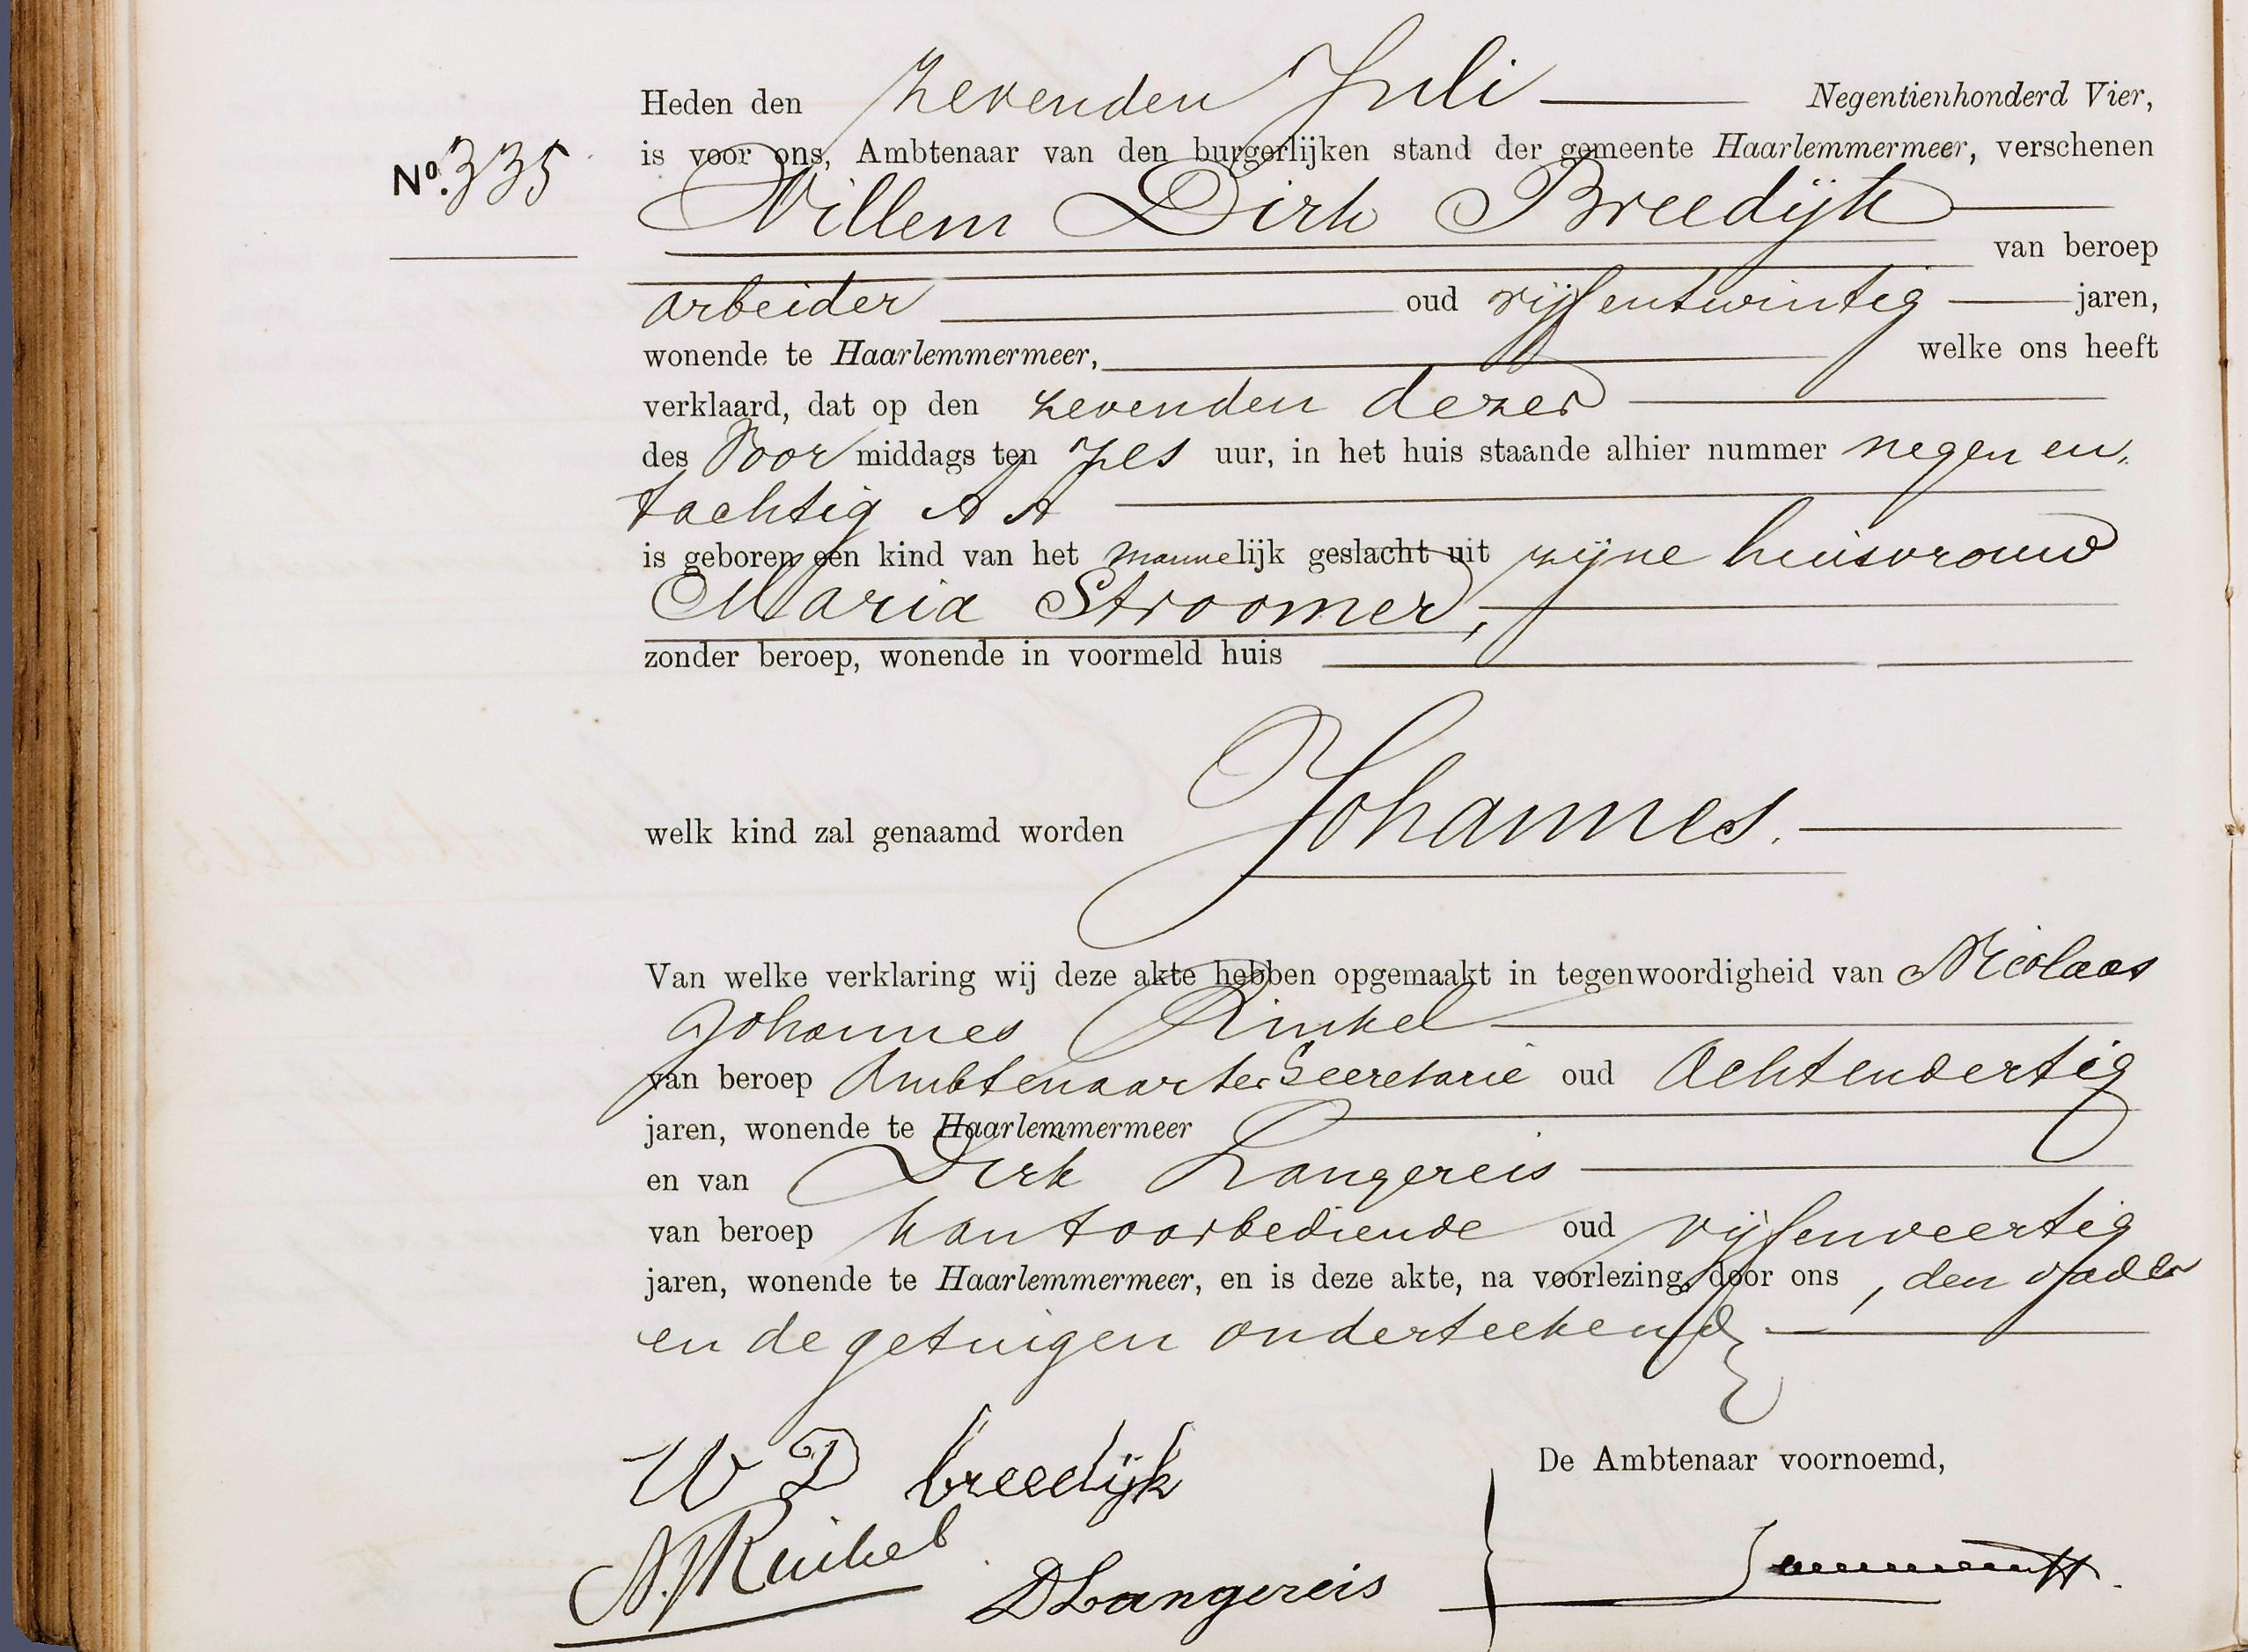 Heden den zevenden Juli Negentienhonderd Vier,
No. 335
is voor ons, Ambtenaar van den burgerlijken stand der gemeente Haarlemmermeer, verschenen
Willem Dirk Breedijk
van beroep
arbeider oud vijfentwintig jaren,
wonende te Haarlemmermeer, welke ons heeft
verklaard, dat op den zevenden dezer
des Voor middags ten zes uur, in het huis staande alhier nummer negen en
tachtig AA
is geboren een kind van het mannelijk geslacht uit zijne huisvrouw
Maria Stroomer,
zonder beroep, wonende in voormeld huis
welk kind zal genaamd worden Johannes.
Van welke verklaring wij deze akte hebben opgemaakt in tegenwoordigheid van Nicolaas
Johannes Rinkel
van beroep Ambtenaar ter Secretarie oud Achtendertig
jaren, wonende te Haarlemmermeer
en van Dirk Langereis
van beroep kantoorbediende oud vijfenveertig
jaren, wonende te Haarlemmermeer, en is deze akte, na voorlezing, door ons, den vader
en de getuigen onderteekend
W D breedijk
De Ambtenaar voornoemd,
N.J Rinkel
D Langereis